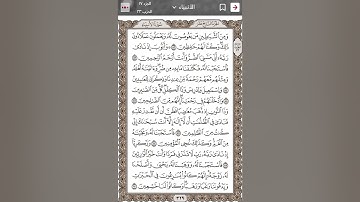 الأنبياء
الجزء ١٧
الحزب ٣٣
وَمِنَ ٱلشَّيَٰطِينِ مَن يَغُوصُونَ لَهُۥ وَيَعْمَلُونَ عَمَلًا دُونَ
ذَٰلِكَ وَكُنَّا لَهُمْ حَٰفِظِينَ ٨٢ وَأَيُّوبَ إِذْ نَادَىٰ
رَبَّهُۥٓ أَنِّي مَسَّنِيَ ٱلضُّرُّ وَأَنتَ أَرْحَمُ ٱلرَّٰحِمِينَ ٨٣
فَٱسْتَجَبْنَا لَهُۥ فَكَشَفْنَا مَا بِهِۦ مِن ضُرٍّ وَءَاتَيْنَٰهُ أَهْلَهُۥ
وَمِثْلَهُم مَّعَهُمْ رَحْمَةً مِّنْ عِندِنَا وَذِكْرَىٰ لِلْعَٰبِدِينَ ٨٤
وَإِسْمَٰعِيلَ وَإِدْرِيسَ وَذَا ٱلْكِفْلِ كُلٌّ مِّنَ ٱلصَّٰبِرِينَ ٨٥
وَأَدْخَلْنَٰهُمْ فِي رَحْمَتِنَآ إِنَّهُم مِّنَ ٱلصَّٰلِحِينَ ٨٦
وَذَا ٱلنُّونِ إِذ ذَّهَبَ مُغَٰضِبًا فَظَنَّ أَن لَّن نَّقْدِرَ عَلَيْهِ
فَنَادَىٰ فِي ٱلظُّلُمَٰتِ أَن لَّآ إِلَٰهَ إِلَّآ أَنتَ سُبْحَٰنَكَ إِنِّي
كُنتُ مِنَ ٱلظَّٰلِمِينَ ٨٧ فَٱسْتَجَبْنَا لَهُۥ وَنَجَّيْنَٰهُ
مِنَ ٱلْغَمِّ وَكَذَٰلِكَ نُۨجِي ٱلْمُؤْمِنِينَ ٨٨ وَزَكَرِيَّآ
إِذْ نَادَىٰ رَبَّهُۥ رَبِّ لَا تَذَرْنِي فَرْدًا وَأَنتَ خَيْرُ ٱلْوَٰرِثِينَ ٨٩
فَٱسْتَجَبْنَا لَهُۥ وَوَهَبْنَا لَهُۥ يَحْيَىٰ وَأَصْلَحْنَا
لَهُۥ زَوْجَهُۥٓ إِنَّهُمْ كَانُوا۟ يُسَٰرِعُونَ فِي ٱلْخَيْرَٰتِ
وَيَدْعُونَنَا رَغَبًا وَرَهَبًا وَكَانُوا۟ لَنَا خَٰشِعِينَ ٩٠
٣٢٩